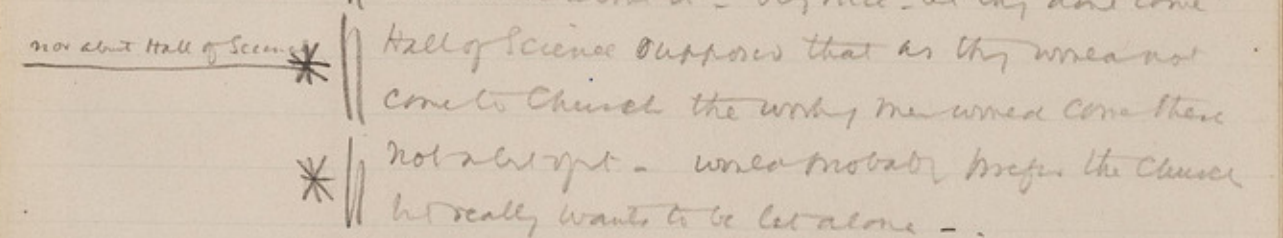 nor about Hall of Science
Hall of Science supposed that as they would not
come to Church the working men would come there
Not a bit of it - would probably prefer the Church
but really wants to be let alone -.